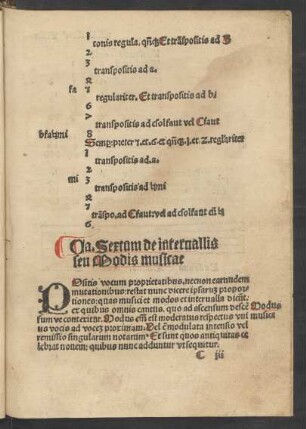 1
tonis regula. qñqʒ Et trãspositis ad
2
3
transpositis ad a.
fa
regulariter. Et transpositis ad b
6
7
transpositis ad csolfaut vel Cfaut
bfabmi
8
1
transpositis ad .a.
2
mi
3
transpositis ad bmi
2
7
6
Ca. Sextum de interuallis
seu Modis musicae
POsitis vocum proprietatibus, necnon earundem
mutationibus restat nunc dicere ipsarum propor
tiones: quas musici et modos et interualla dicũt,
ex quibus omnis cantus, quo ad ascensum descẽ Modus
sum ve conteritur. Modus est moderatus respectus vni musici
us vocis ad vocem proximam. Vel cõmodulata intensio vel
remissio singularum notarum. Et sunt quos antiquitas ce
lebrat nouem: quibus nunc adduntur vt sequitur.
C iij